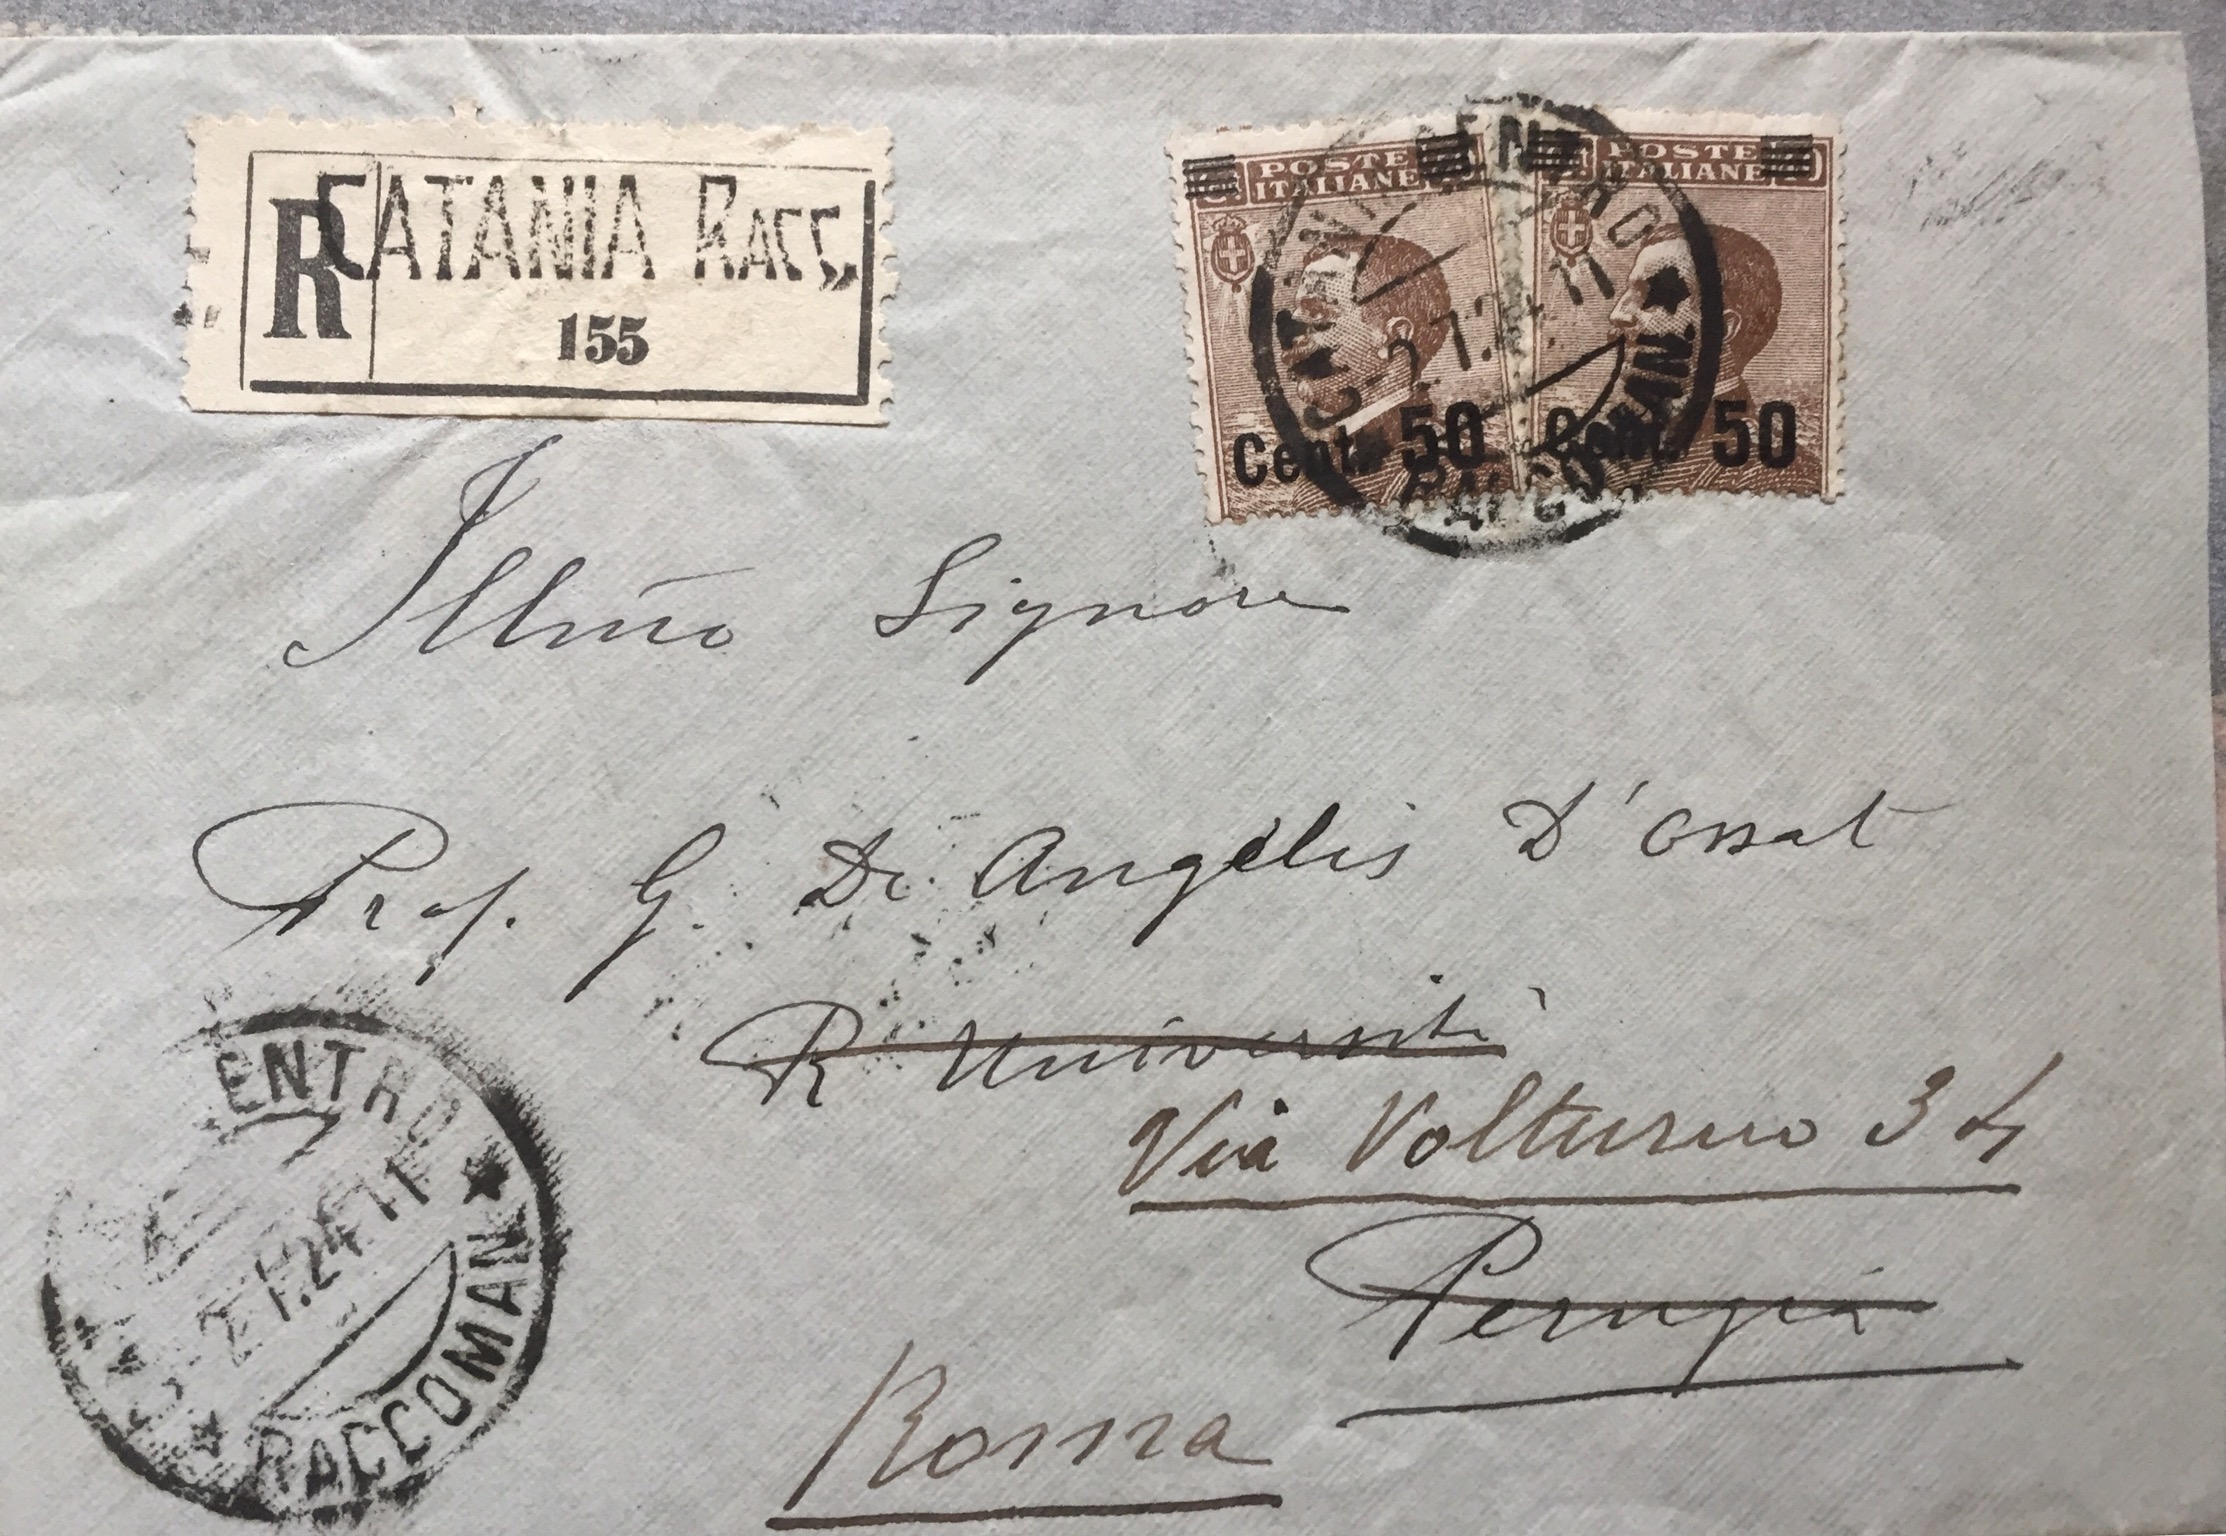 R CATANIA Racc.
155
POSTE ITALIANE
Cent. 50
POSTE ITALIANE
Cent. 50
CENTRO
CATANIA
RACCOMAN.
Illmo Signore
Prof. G. De Angelis D'Ossat
R Università
Via Volturno 34
Perugia
Roma
ENTRO
2.1.24.11
RACCOMAN